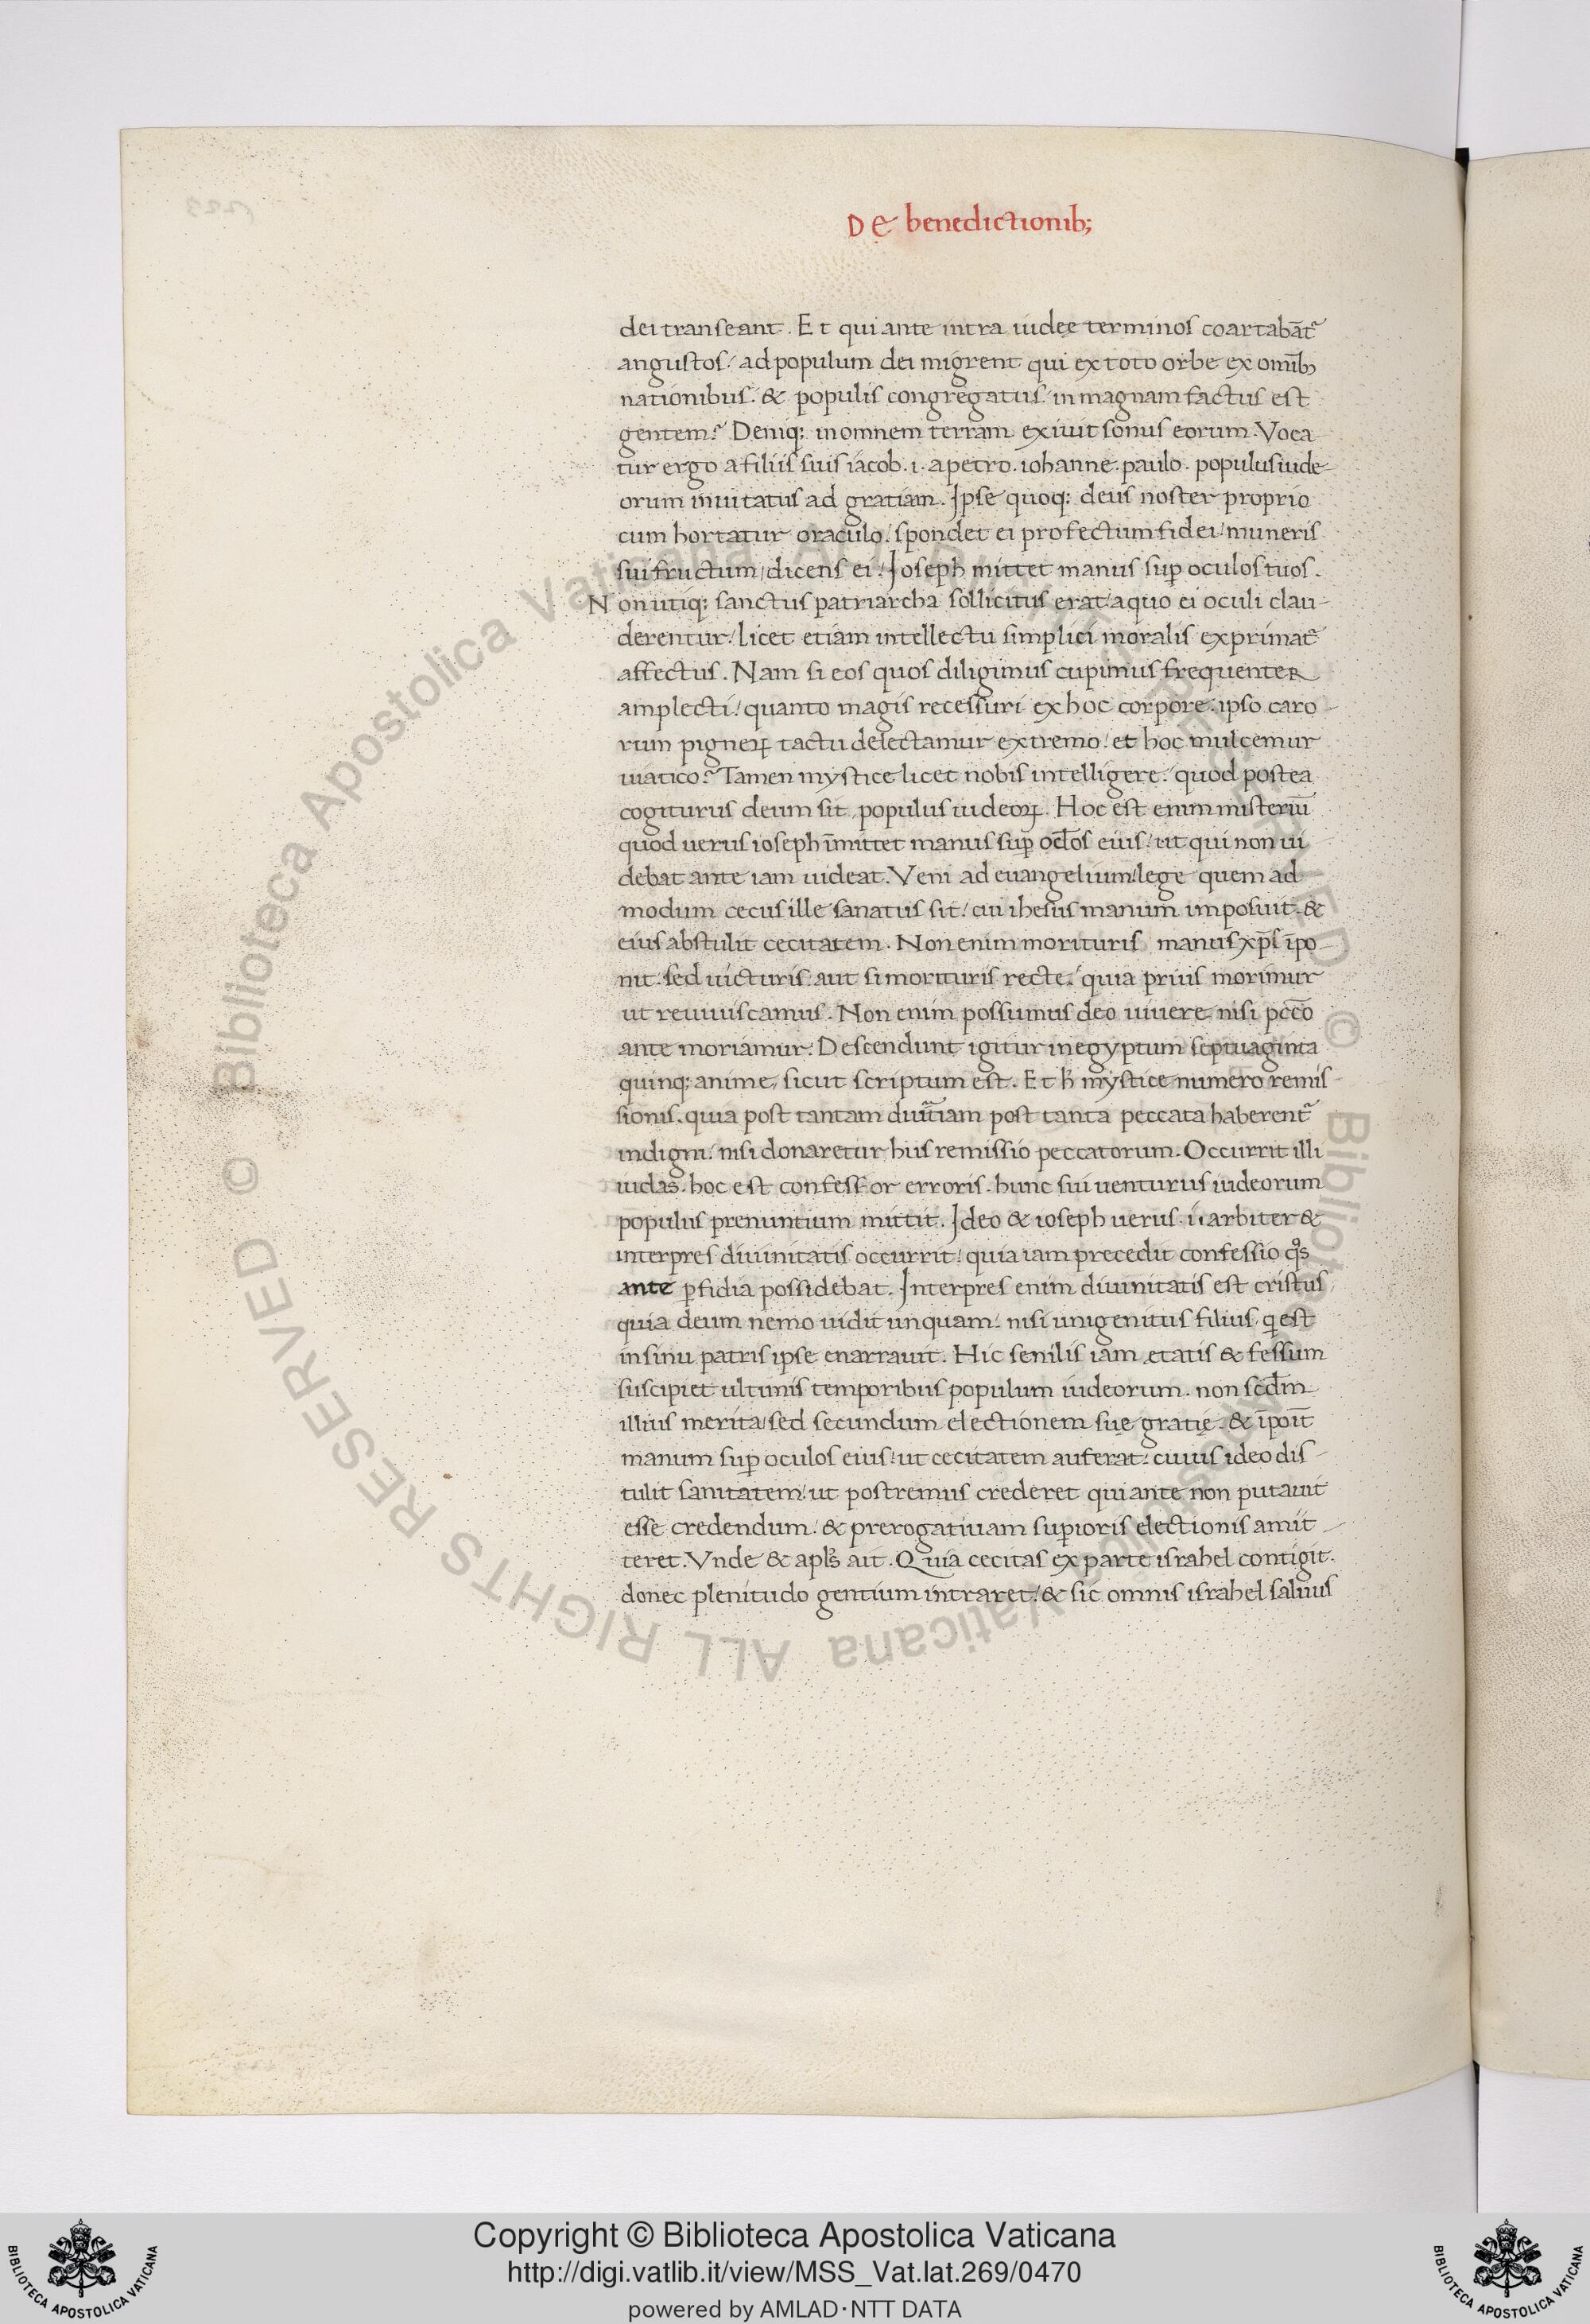 De benedictionib;
dei transeant. Et qui ante intra iudeę terminos coartabāt᷑
angustos / ad populum dei migrent qui ex toto orbe ex omīb;
nationibus / & populis congregatus / in magnam factus est
gentem? Deniq; in omnem terram exiuit sonus eorum. Voca
tur ergo a filiis suis iacob .i. a petro. iohanne. paulo. populus iude-
orum inuitatus ad gratiam. Ipse quoq; deus noster proprio
cum hortatur oraculo / spondet ei profectum fidei / muneris
sui fructum / dicens ei / Ioseph mittet manus sup̄ oculos tuos.
Non utiq; sanctus patriarcha sollicitus erat / a quo ei oculi clau-
derentur / licet etiam intellectu simplici moralis exprimat᷑
affectus. Nam si eos quos diligimus cupimus frequenter
amplecti / quanto magis recessuri ex hoc corpore / ipso caro-
rum pigneꝝ tactu delectamur extremo / et hoc mulcemur
uiatico? Tamen mystice licet nobis intelligere / quod postea
cogiturus deum sit populus iudeoꝝ. Hoc est enim misteriū
quod uerus ioseph īmittet manus sup̄ oc̄los eius / ut qui non ui
debat ante iam uideat. Veni ad euangelium / lege quem ad
modum cecus ille sanatus sit / cui ihesus manum imposuit. &
eius abstulit cecitatem. Non enim morituris manus xp̄s īpo-
nit. sed uicturis. aut si morituris recte / quia prius morimur
ut reuiuiscamus. Non enim possumus deo uiuere nisi pcc̄o
ante moriamur. Descendunt igitur in egyptum septuaginta
quinq; anime, sicut scriptum est. Et h̄ mystice numero remis-
sionis. quia post tantam duritiam post tanta peccata haberent᷑
indigni / nisi donaretur hiis remissio peccatorum. Occurrit illi
iudas. hoc est confessor erroris. hunc sui uenturus iudeorum
populus prenuntium mittit. Ideo & ioseph uerus .i. arbiter &
interpres diuinitatis occurrit / quia iam precedit confessio qͦs
ante p̱fidia possidebat. Interpres enim diuinitatis est cristus
quia deum nemo uidit unquam / nisi unigenitus filius, qi est
in sinu patris ipse enarrauit. Hic senilis iam ętatis & fessum
suscipiet ultimis temporibus populum iudeorum. non scd̄m
illius merita / sed secundum electionem suę gratię. & īpōit
manum sup̄ oculos eius / ut cecitatem auferat / cuius ideo dis-
tulit sanitatem / ut postremus crederet qui ante non putauit
esse credendum / & prerogatiuam sup̱ioris electionis amit-
teret. Vnde & apls̄ ait. Quia cecitas ex parte israhel contigit.
donec plenitudo gentium intraret / & sic omnis israhel saluus
Copyright © Biblioteca Apostolica Vaticana
http://digi.vatlib.it/view/MSS_Vat.lat.269/0470
powered by AMLAD·NTT DATA
BIBLIOTECA APOSTOLICA VATICANA
BIBLIOTECA APOSTOLICA VATICANA
© Biblioteca Apostolica Vaticana ALL RIGHTS RESERVED © Biblioteca Apostolica Vaticana ALL RIGHTS RESERVED